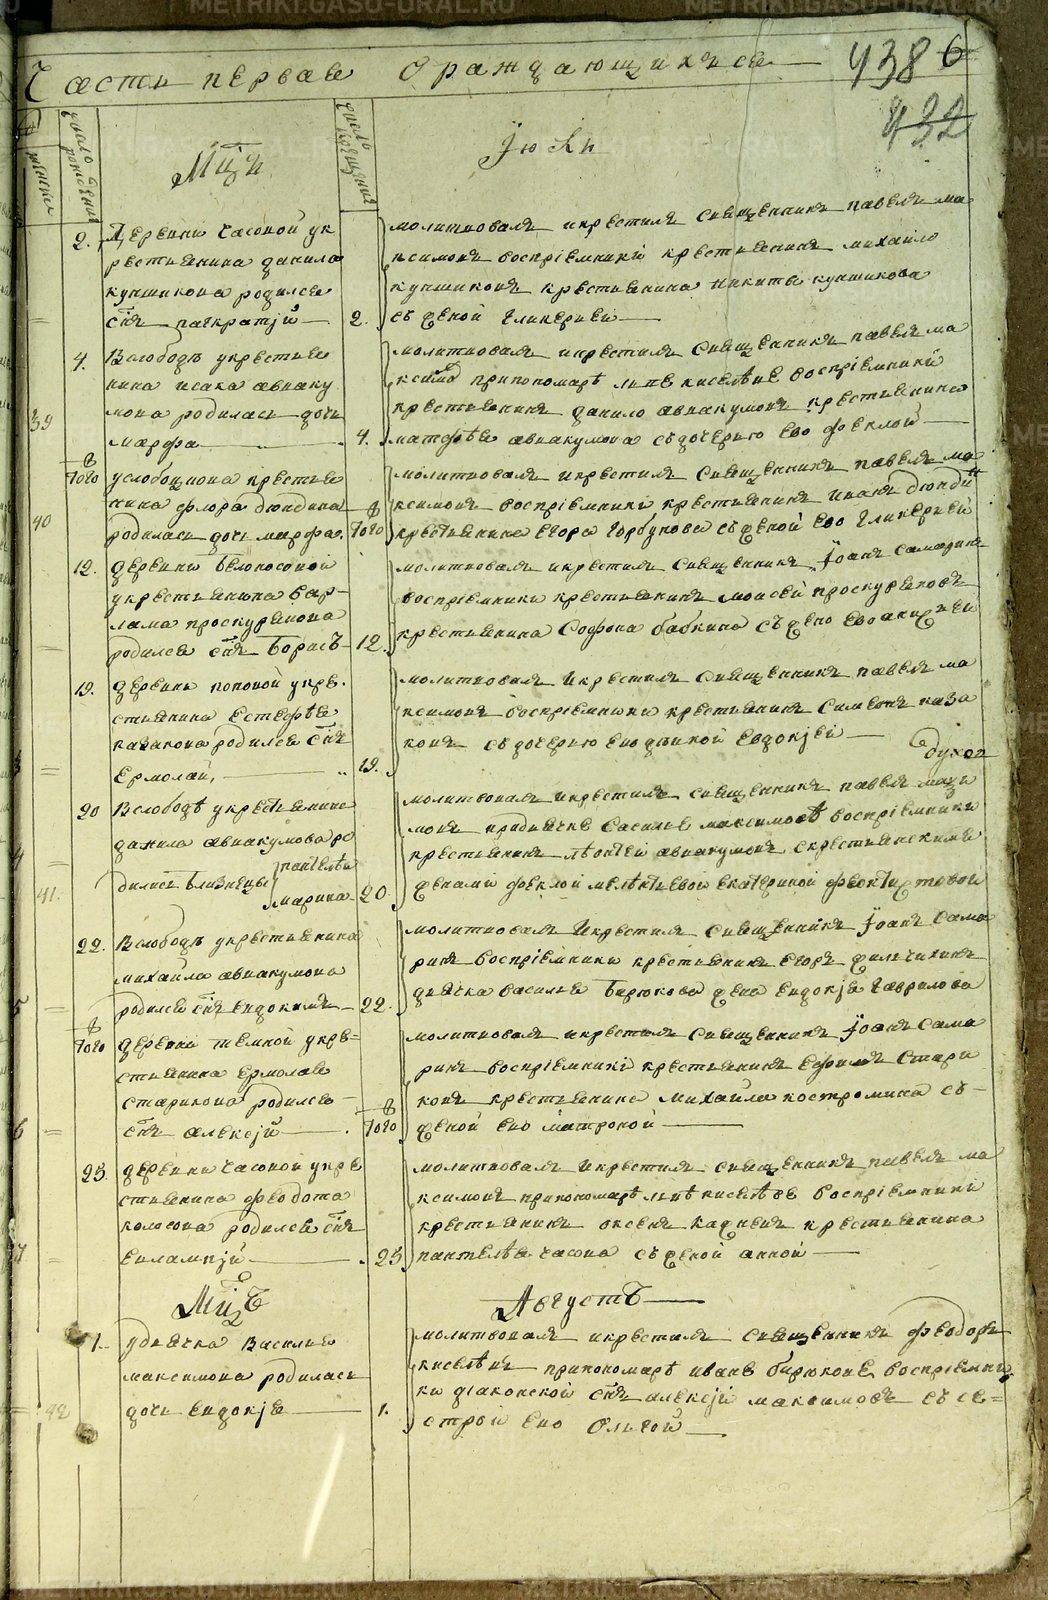 METRIKI.GASU-URAL.RU
Часть первая о раждающихся
438 6
432
число рождения
число крещения
Мцъ
Июль
2. Деревни Часовой у кр
рестьянина данила
купшикова родился
снъ панкратiй
2.
молитвовалъ и крестилъ священникъ павелъ ма
ксимовъ воспрiемники крестьянинъ михайло
купшиковъ крестьянина никиты купшикова
съ женой гликерией
39
4. В слободѣ у крестья
нина исака авваку
мова родилась дочь
марфа
4.
молитвовалъ и крестилъ священникъ павелъ ма
ксимов при пономарѣ воспрiемники
крестьянинъ данило аввакумовъ крестьянина
матфѣя аввакумова съ дочерью ево феклой
40
8
того
у слобоцкова крестья
нина флора дюндина
родилась дочь марфа.
8
того
молитвовалъ и крестилъ священникъ павелъ ма
ксимовъ воспрiемники крестьянинъ иванъ дюнди
крестьянина егора горбунова съ женой ево гликерией
12. деревни Белоносовой
у крестьянина вар-
лама проскурякова
родился снъ Борисъ
12.
молитвовалъ и крестилъ священникъ Iоанъ самаринъ
воспрiемники крестьянинъ моисей проскуряковъ
крестьянина Софона бабкина съ жено ево
19. деревни поповой у кре-
стьянина естефѣя
казакова родился снъ
Ермолай,
19.
молитвовалъ и крестилъ священникъ павелъ ма
ксимовъ воспрiемники крестьянинъ Симеонъ каза
ковъ съ дочерью ево дѣвкой Евдокiей
20 В слободѣ у крестьянина
данила аввакумова ро
дились близнецы пантелѣй
марина
41.
20.
молитвовалъ и крестилъ священникъ павелъ макси
мовъ при дьячке василье максимовѣ воспрiемники
крестьянинъ лѣонтей аввакумовъ с крестьянскими
женами феклой мелѣнтьевой екатериной
22. В слободѣ у крестьянина
михайла аввакумова
родился снъ евдокимъ
22.
молитвовалъ и крестилъ священникъ Iоанъ Сама
ринъ воспрiемники крестьянинъ егоръ
дьячка василья Бирюкова жена евдокiя гаврилова
8
того
деревни темной у кре-
стьянина ермолая
старикова родился
снъ алексiй
8
того
молитвовалъ и крестилъ священникъ Iоанъ Сама
ринъ воспрiемники крестьянинъ Ефимъ Стари
ковъ крестьянина михайла костромина съ
женой ево матроной
25. деревни Часовой у кре
стьянина федота
колосова родился снъ
евлампiй
25.
молитвовалъ и крестилъ священникъ павелъ ма
ксимовъ при пономарѣ воспрiемники
крестьянинъ крестьянина
пантелѣя часова съ женой анной
Мцъ
Августъ
1. у дьячка Василья
максимова родилась
дочь евдокiя
42
1.
молитвовалъ и крестилъ священникъ феодоръ
киселѣвъ при пономарѣ иване бирюкове воспрiемни
ки дiаконской снъ алексiй максимовъ съ се-
строй ево Ольгой